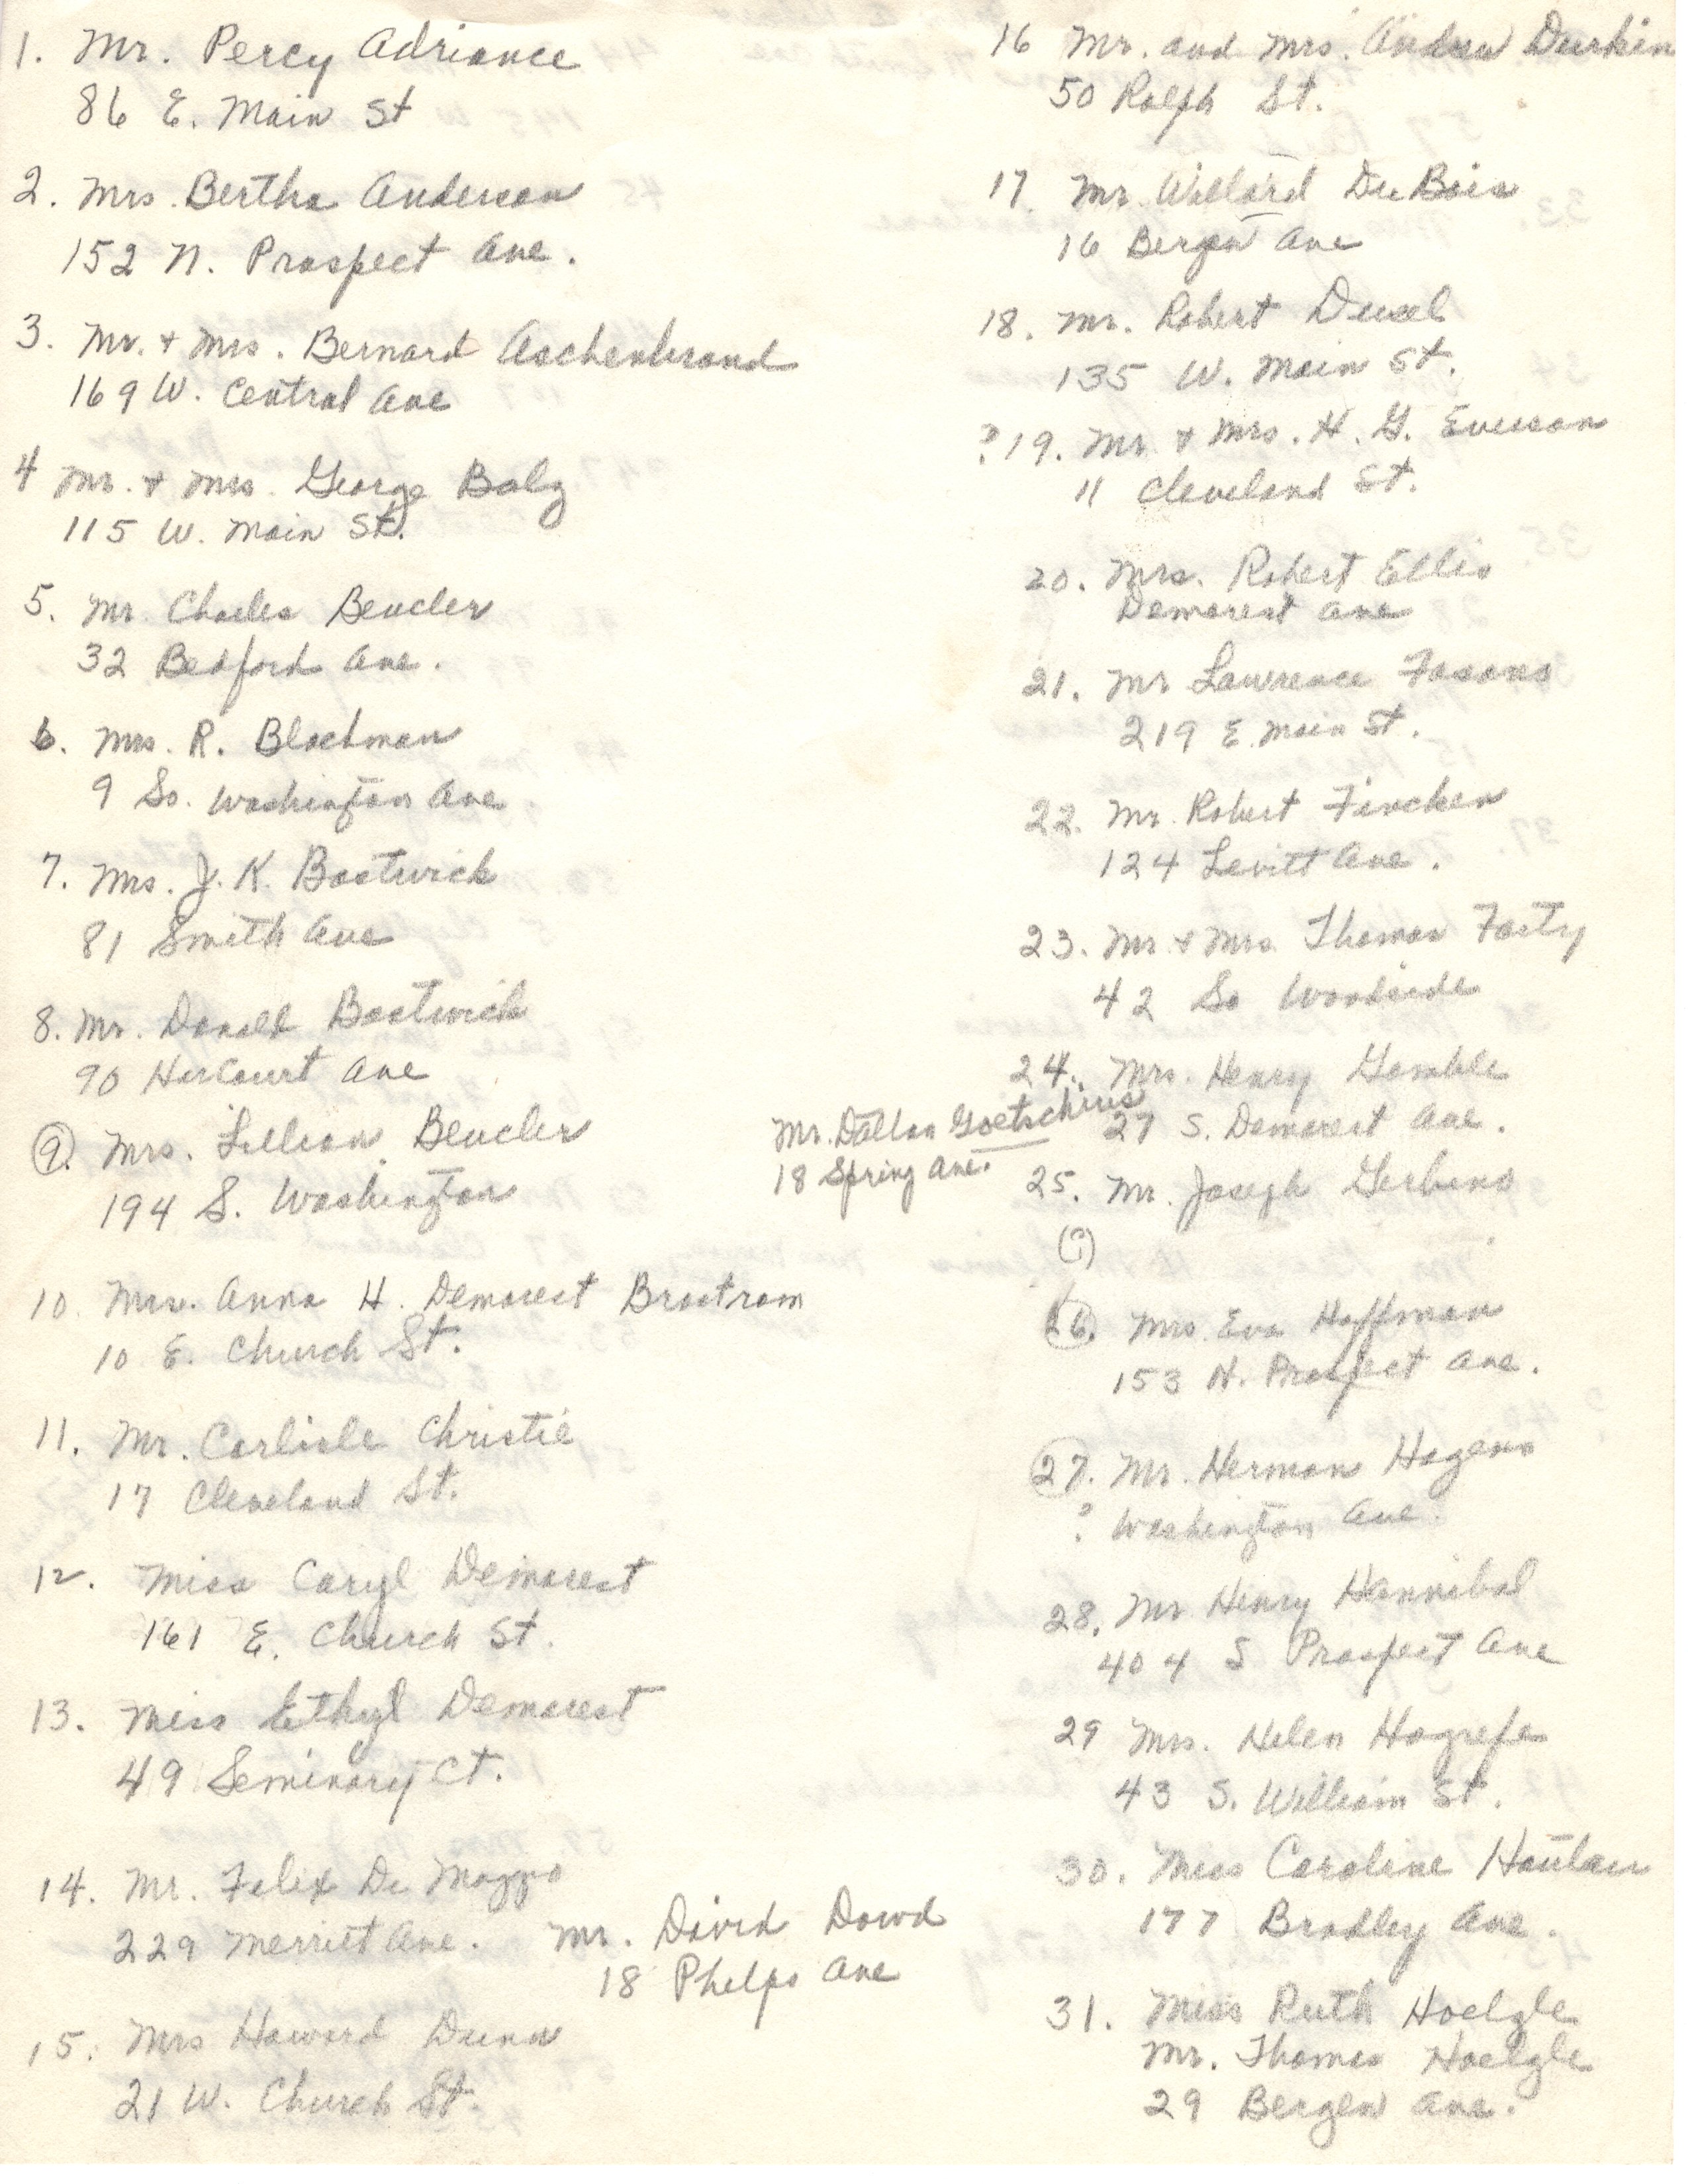 1. Mr. Percy Adriance
86 E. Main St
2. Mrs. Bertha Anderson
152 N. Prospect Ave.
3. Mr. + Mrs. Bernard Aschenbrand
169 W. Central Ave
4 Mr. + Mrs. George Balz
115 W. Main St.
5. Mr. Charles Beucler
32 Bedford Ave.
6. Mrs. R. Blackman
9 So. Washington Ave
7. Mrs. J. K. Bostwick
81 Smith Ave
8. Mr. Donald Bostwick
90 Harcourt Ave
9. Mrs. Lillian Beucler
194 S. Washington
10. Mrs. Anna H. Demarest Brostrom
10 E. Church St.
11. Mr. Carlisle Christie
17 Cleveland St.
12. Miss Caryl Demarest
161 E. Church St.
13. Miss Ethyl Demarest
49 Seminary Ct.
14. Mr. Felix De Mazzo
229 Merritt Ave.
Mr. David Dowd
18 Phelps Ave
15. Mrs Howard Dunn
21 W. Church St.
16 Mr. and Mrs. Andrew Durkin
50 Ralph St.
17. Mr. Willard DuBois
16 Bergen Ave
18. Mr. Robert Deuel
135 W. Main St.
? 19. Mr + Mrs. H. G. Everson
11 Cleveland St.
20. Mrs. Robert Ellis
Demarest Ave
21. Mr Lawrence Fasano
219 E. Main St.
22. Mr. Robert Fincken
124 Levitt Ave.
23. Mr + Mrs Thomas Forty
42 So Woodside
24. Mrs. Henry Gamble
27 S. Demarest Ave.
Mr. Dallas Goetschius
18 Spring Ave.
25. Mr. Joseph Gerbino
(?)
26. Mrs. Eva Hoffman
153 N. Prospect Ave.
27. Mr. Herman Hagens
? Washington Ave.
28. Mr Henry Hannibal
404 S Prospect Ave
29 Mrs. Helen Hogrefe
43 S. William St.
30. Miss Caroline
177 Bradley Ave.
31. Miss Ruth Hoelzle
Mr. Thomas Hoelzle
29 Bergen Ave.